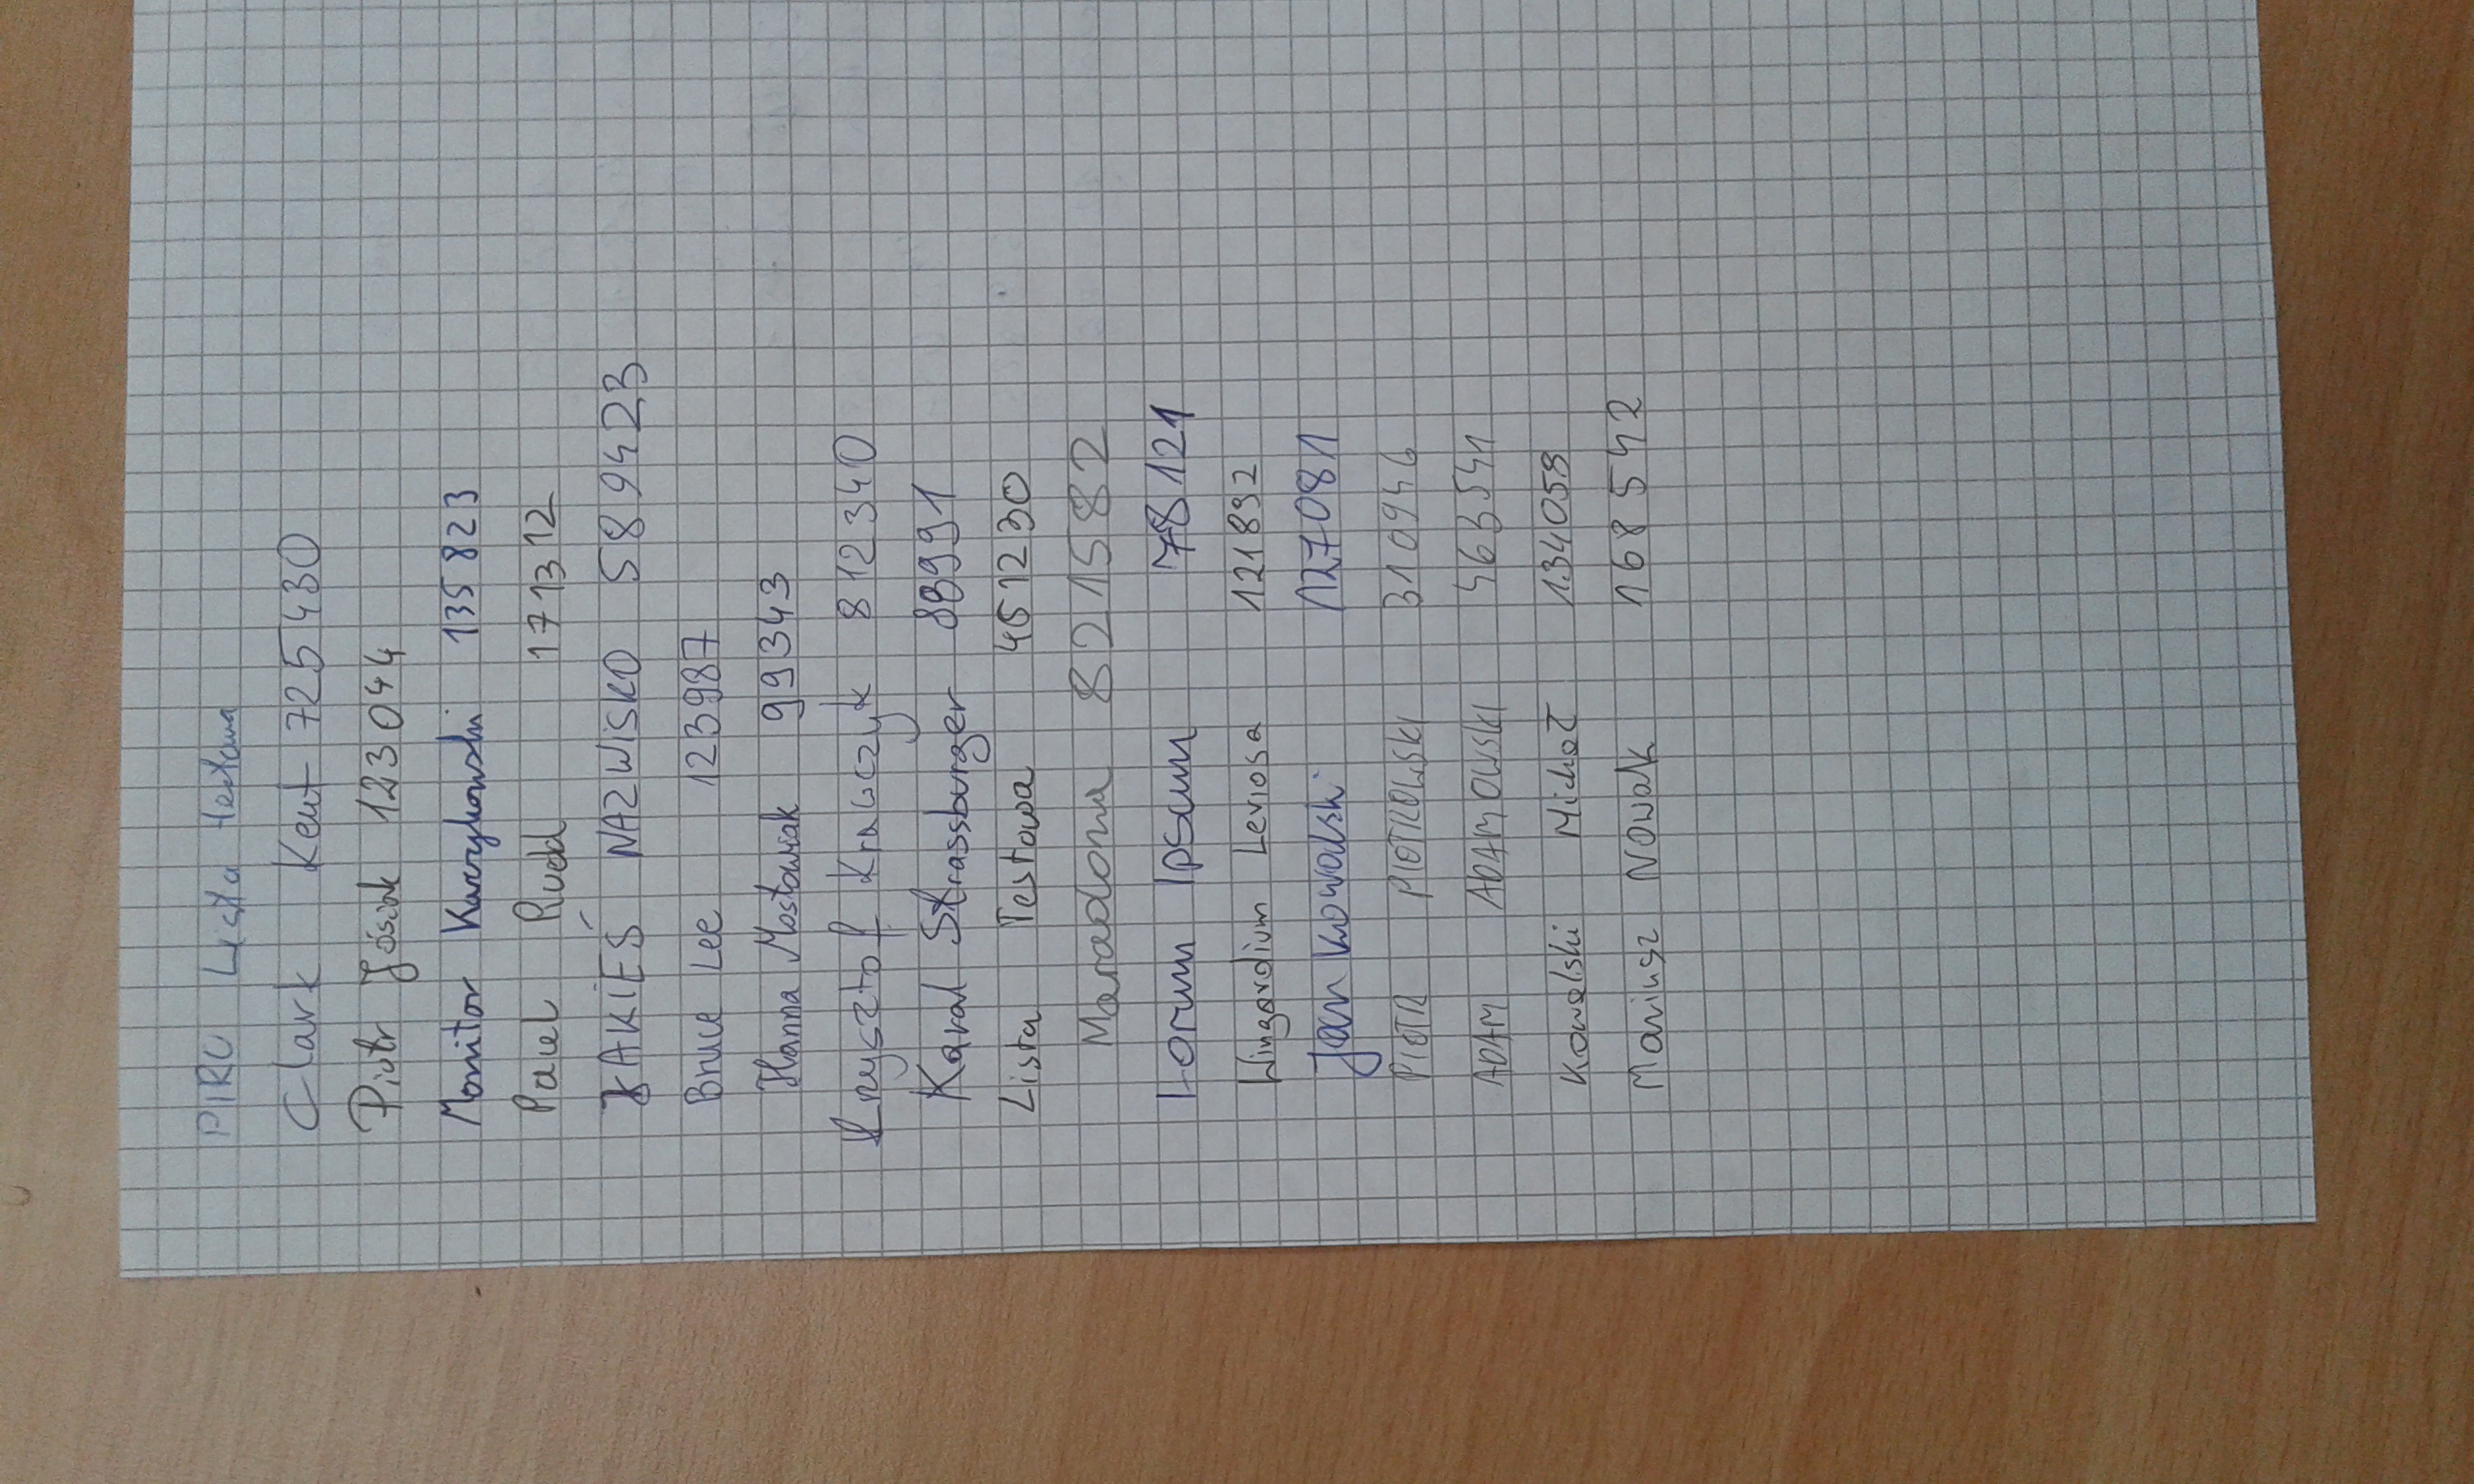 PIRO Lista testowa
Clark Kent 725430
Piotr Jósiak 123044
Monitor Kaczykowski 135823
Paul Rudd 171312
JAKIEŚ NAZWISKO 589423
Bruce Lee 123987
Hanna Mostowiak 99343
Krzysztof Krawczyk 812340
Karol Strassburger 88991
Lista Testowa 451230
Maradona 821582
Lorum Ipsum 78121
Wingardium Leviosa 121892
Jan Kowalski 127081
PIOTR PIOTROWSKI 310946
ADAM ADAMOWSKI 463541
Kowalski Michał 134059
Mariusz Nowak 168542